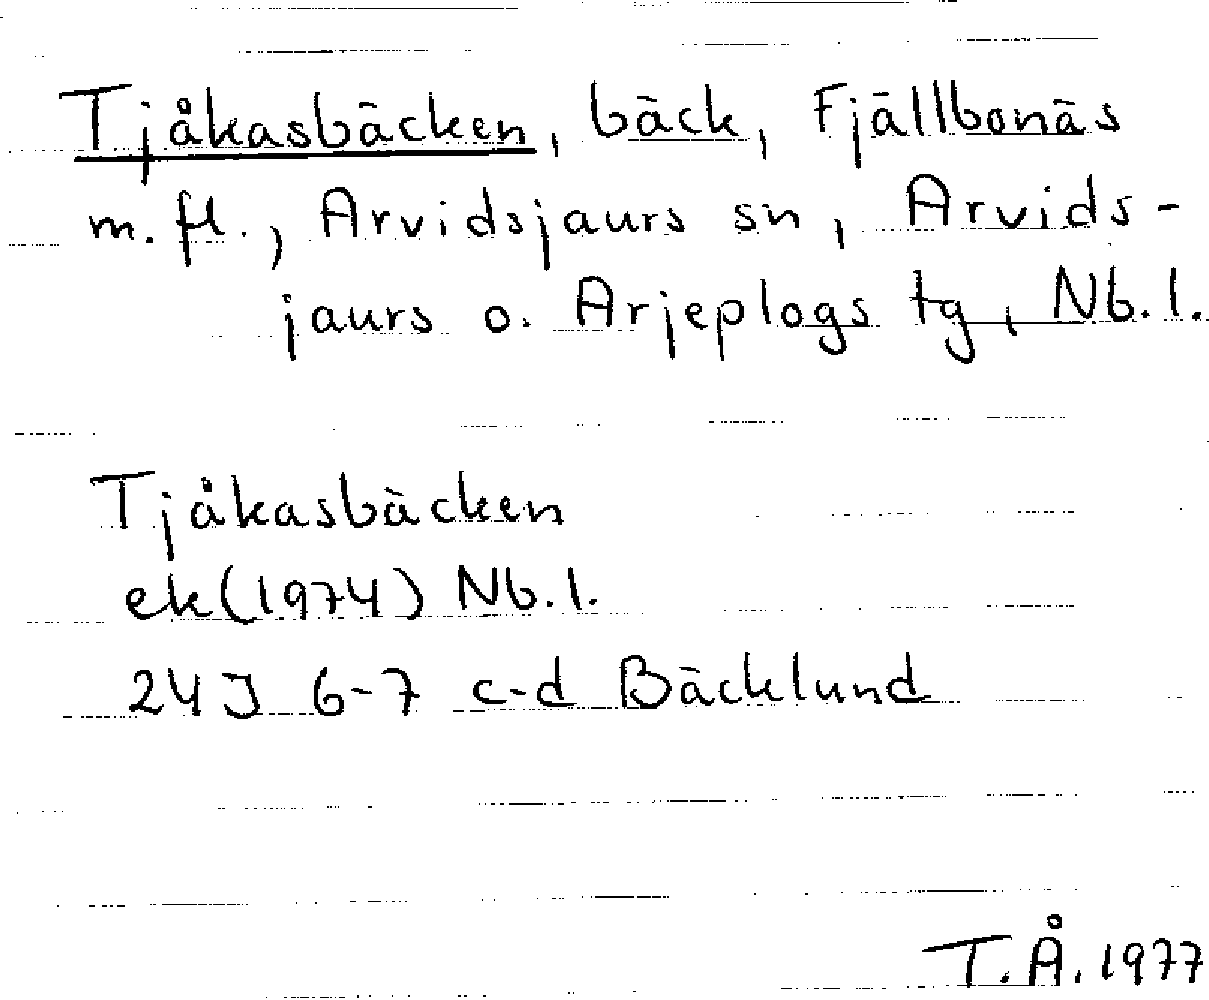 Tjåkasbäcken, bäck, Fjällbonäs
m. fl., Arvidsjaurs sn, Arvids-
jaurs o. Arjeplogs tg, Nb. l.
Tjåkasbäcken
ek (1974) Nb. l.
24J 6-7 c-d Bäcklund
T.Å. 1977